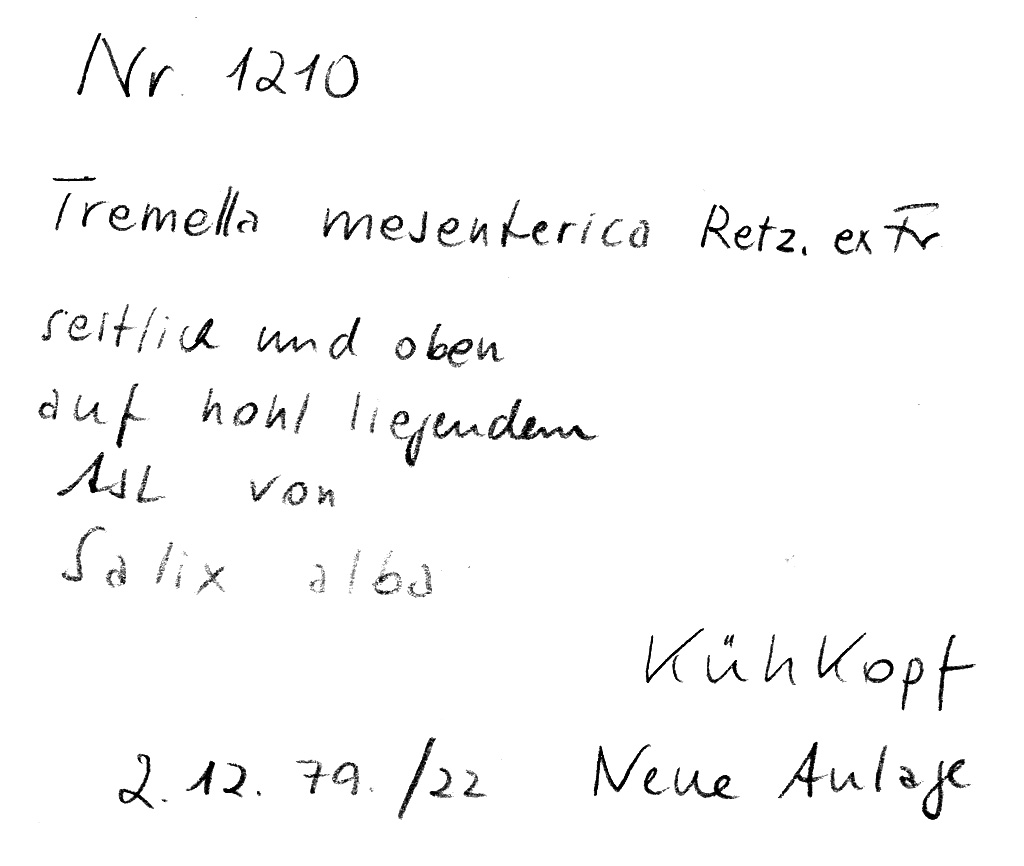 Nr. 1210
Tremella mesenterica Retz. ex Fr
seitlich und oben
auf hohl liegendem
Ast von
Salix alba
Kühkopf
2. 12. 79. /22 Neue Anlage